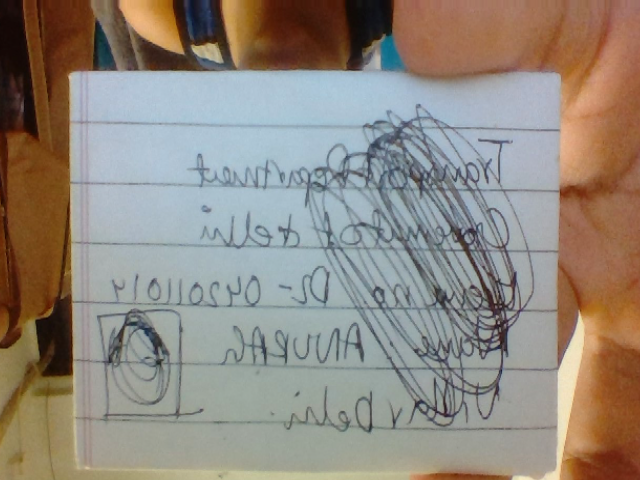 Transport Department
Goverment of delhi
no DL-042011014
Name : ANURAG
Delhi